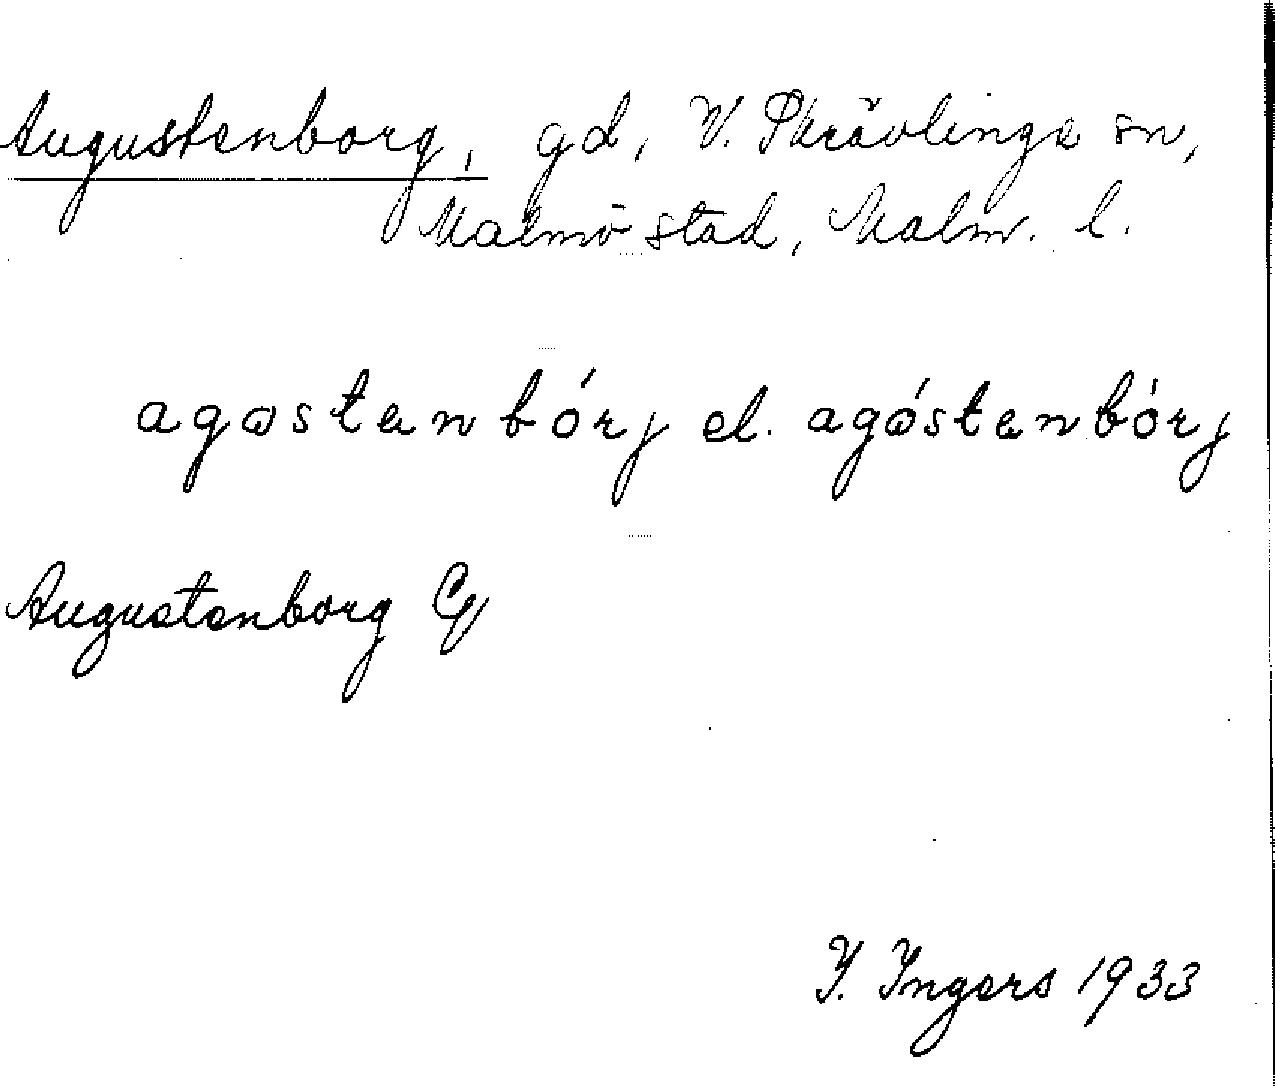 Augustenborg, gd, V. Skrävlinge sn,
Malmö stad, Malm. l.
agɷstenbórj el. agɷ́stenbórj
Augustenborg
I. Ingers 1933